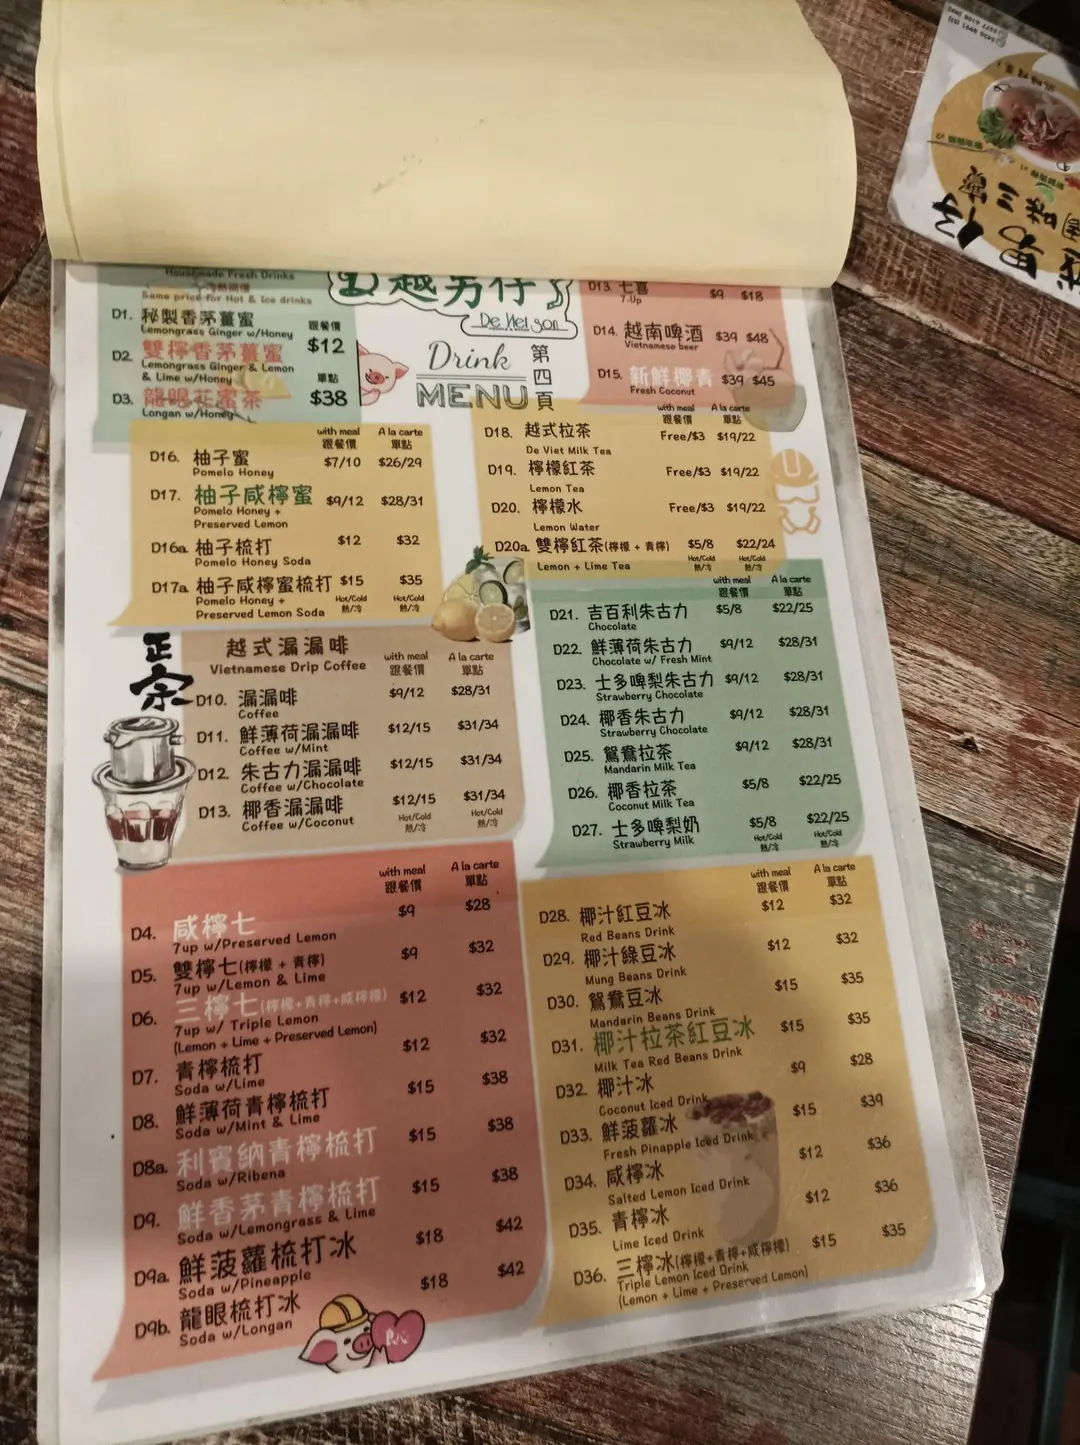 Housemade Fresh Drinks
Same price for Hot & Ice drinks
D1. 秘製香茅薑蜜
Lemongrass Ginger w/Honey
D2. 雙檸香茅薑蜜
Lemongrass Ginger & Lemon
& Lime w/Honey
D3. 龍眼花蜜茶
Longan w/Honey
跟餐價
$12
單點
$38
越男仔
De Viet Son
Drink
MENU
第四頁
D13. 七喜 $9 $18
7-Up
D14. 越南啤酒 $39 $48
Vietnamese beer
D15. 新鮮椰青 $39 $45
Fresh Coconut
with meal A la carte
跟餐價 單點
D16. 柚子蜜 $7/10 $26/29
Pomelo Honey
D17. 柚子咸檸蜜 $9/12 $28/31
Pomelo Honey +
Preserved Lemon
D16a. 柚子梳打 $12 $32
Pomelo Honey Soda
D17a. 柚子咸檸蜜梳打 $15 $35
Pomelo Honey +
Preserved Lemon Soda
Hot/Cold Hot/Cold
熱/冷 熱/冷
with meal A la carte
跟餐價 單點
D18. 越式拉茶 Free/$3 $19/22
De Viet Milk Tea
D19. 檸檬紅茶 Free/$3 $19/22
Lemon Tea
D20. 檸檬水 Free/$3 $19/22
Lemon Water
D20a. 雙檸紅茶(檸檬 + 青檸) $5/8 $22/24
Lemon + Lime Tea
Hot/Cold Hot/Cold
熱/冷 熱/冷
正宗
越式漏漏啡
Vietnamese Drip Coffee
with meal A la carte
跟餐價 單點
D10. 漏漏啡 $9/12 $28/31
Coffee
D11. 鮮薄荷漏漏啡 $12/15 $31/34
Coffee w/Mint
D12. 朱古力漏漏啡 $12/15 $31/34
Coffee w/Chocolate
D13. 椰香漏漏啡 $12/15 $31/34
Coffee w/Coconut
Hot/Cold Hot/Cold
熱/冷 熱/冷
with meal A la carte
跟餐價 單點
D21. 吉百利朱古力 $5/8 $22/25
Chocolate
D22. 鮮薄荷朱古力 $9/12 $28/31
Chocolate w/ Fresh Mint
D23. 士多啤梨朱古力 $9/12 $28/31
Strawberry Chocolate
D24. 椰香朱古力 $9/12 $28/31
Strawberry Chocolate
D25. 鴛鴦拉茶 $9/12 $28/31
Mandarin Milk Tea
D26. 椰香拉茶 $5/8 $22/25
Coconut Milk Tea
D27. 士多啤梨奶 $5/8 $22/25
Strawberry Milk
Hot/Cold Hot/Cold
熱/冷 熱/冷
with meal A la carte
跟餐價 單點
D4. 咸檸七 $9 $28
7up w/Preserved Lemon
D5. 雙檸七(檸檬 + 青檸) $9 $32
7up w/Lemon & Lime
D6. 三檸七(檸檬+青檸+咸檸檬) $12 $32
7up w/ Triple Lemon
(Lemon + Lime + Preserved Lemon)
D7. 青檸梳打 $12 $32
Soda w/Lime
D8. 鮮薄荷青檸梳打 $15 $38
Soda w/Mint & Lime
D8a. 利賓納青檸梳打 $15 $38
Soda w/Ribena
D9. 鮮香茅青檸梳打 $15 $38
Soda w/Lemongrass & Lime
D9a. 鮮菠蘿梳打冰 $18 $42
Soda w/Pineapple
D9b. 龍眼梳打冰 $18 $42
Soda w/Longan
良心
with meal A la carte
跟餐價 單點
D28. 椰汁紅豆冰 $12 $32
Red Beans Drink
D29. 椰汁綠豆冰 $12 $32
Mung Beans Drink
D30. 鴛鴦豆冰 $15 $35
Mandarin Beans Drink
D31. 椰汁拉茶紅豆冰 $15 $35
Milk Tea Red Beans Drink
D32. 椰汁冰 $9 $28
Coconut Iced Drink
D33. 鮮菠蘿冰 $15 $39
Fresh Pinapple Iced Drink
D34. 咸檸冰 $12 $36
Salted Lemon Iced Drink
D35. 青檸冰 $12 $36
Lime Iced Drink
D36. 三檸冰(檸檬+青檸+咸檸檬) $15 $35
Triple Lemon Iced Drink
(Lemon + Lime + Preserved Lemon)